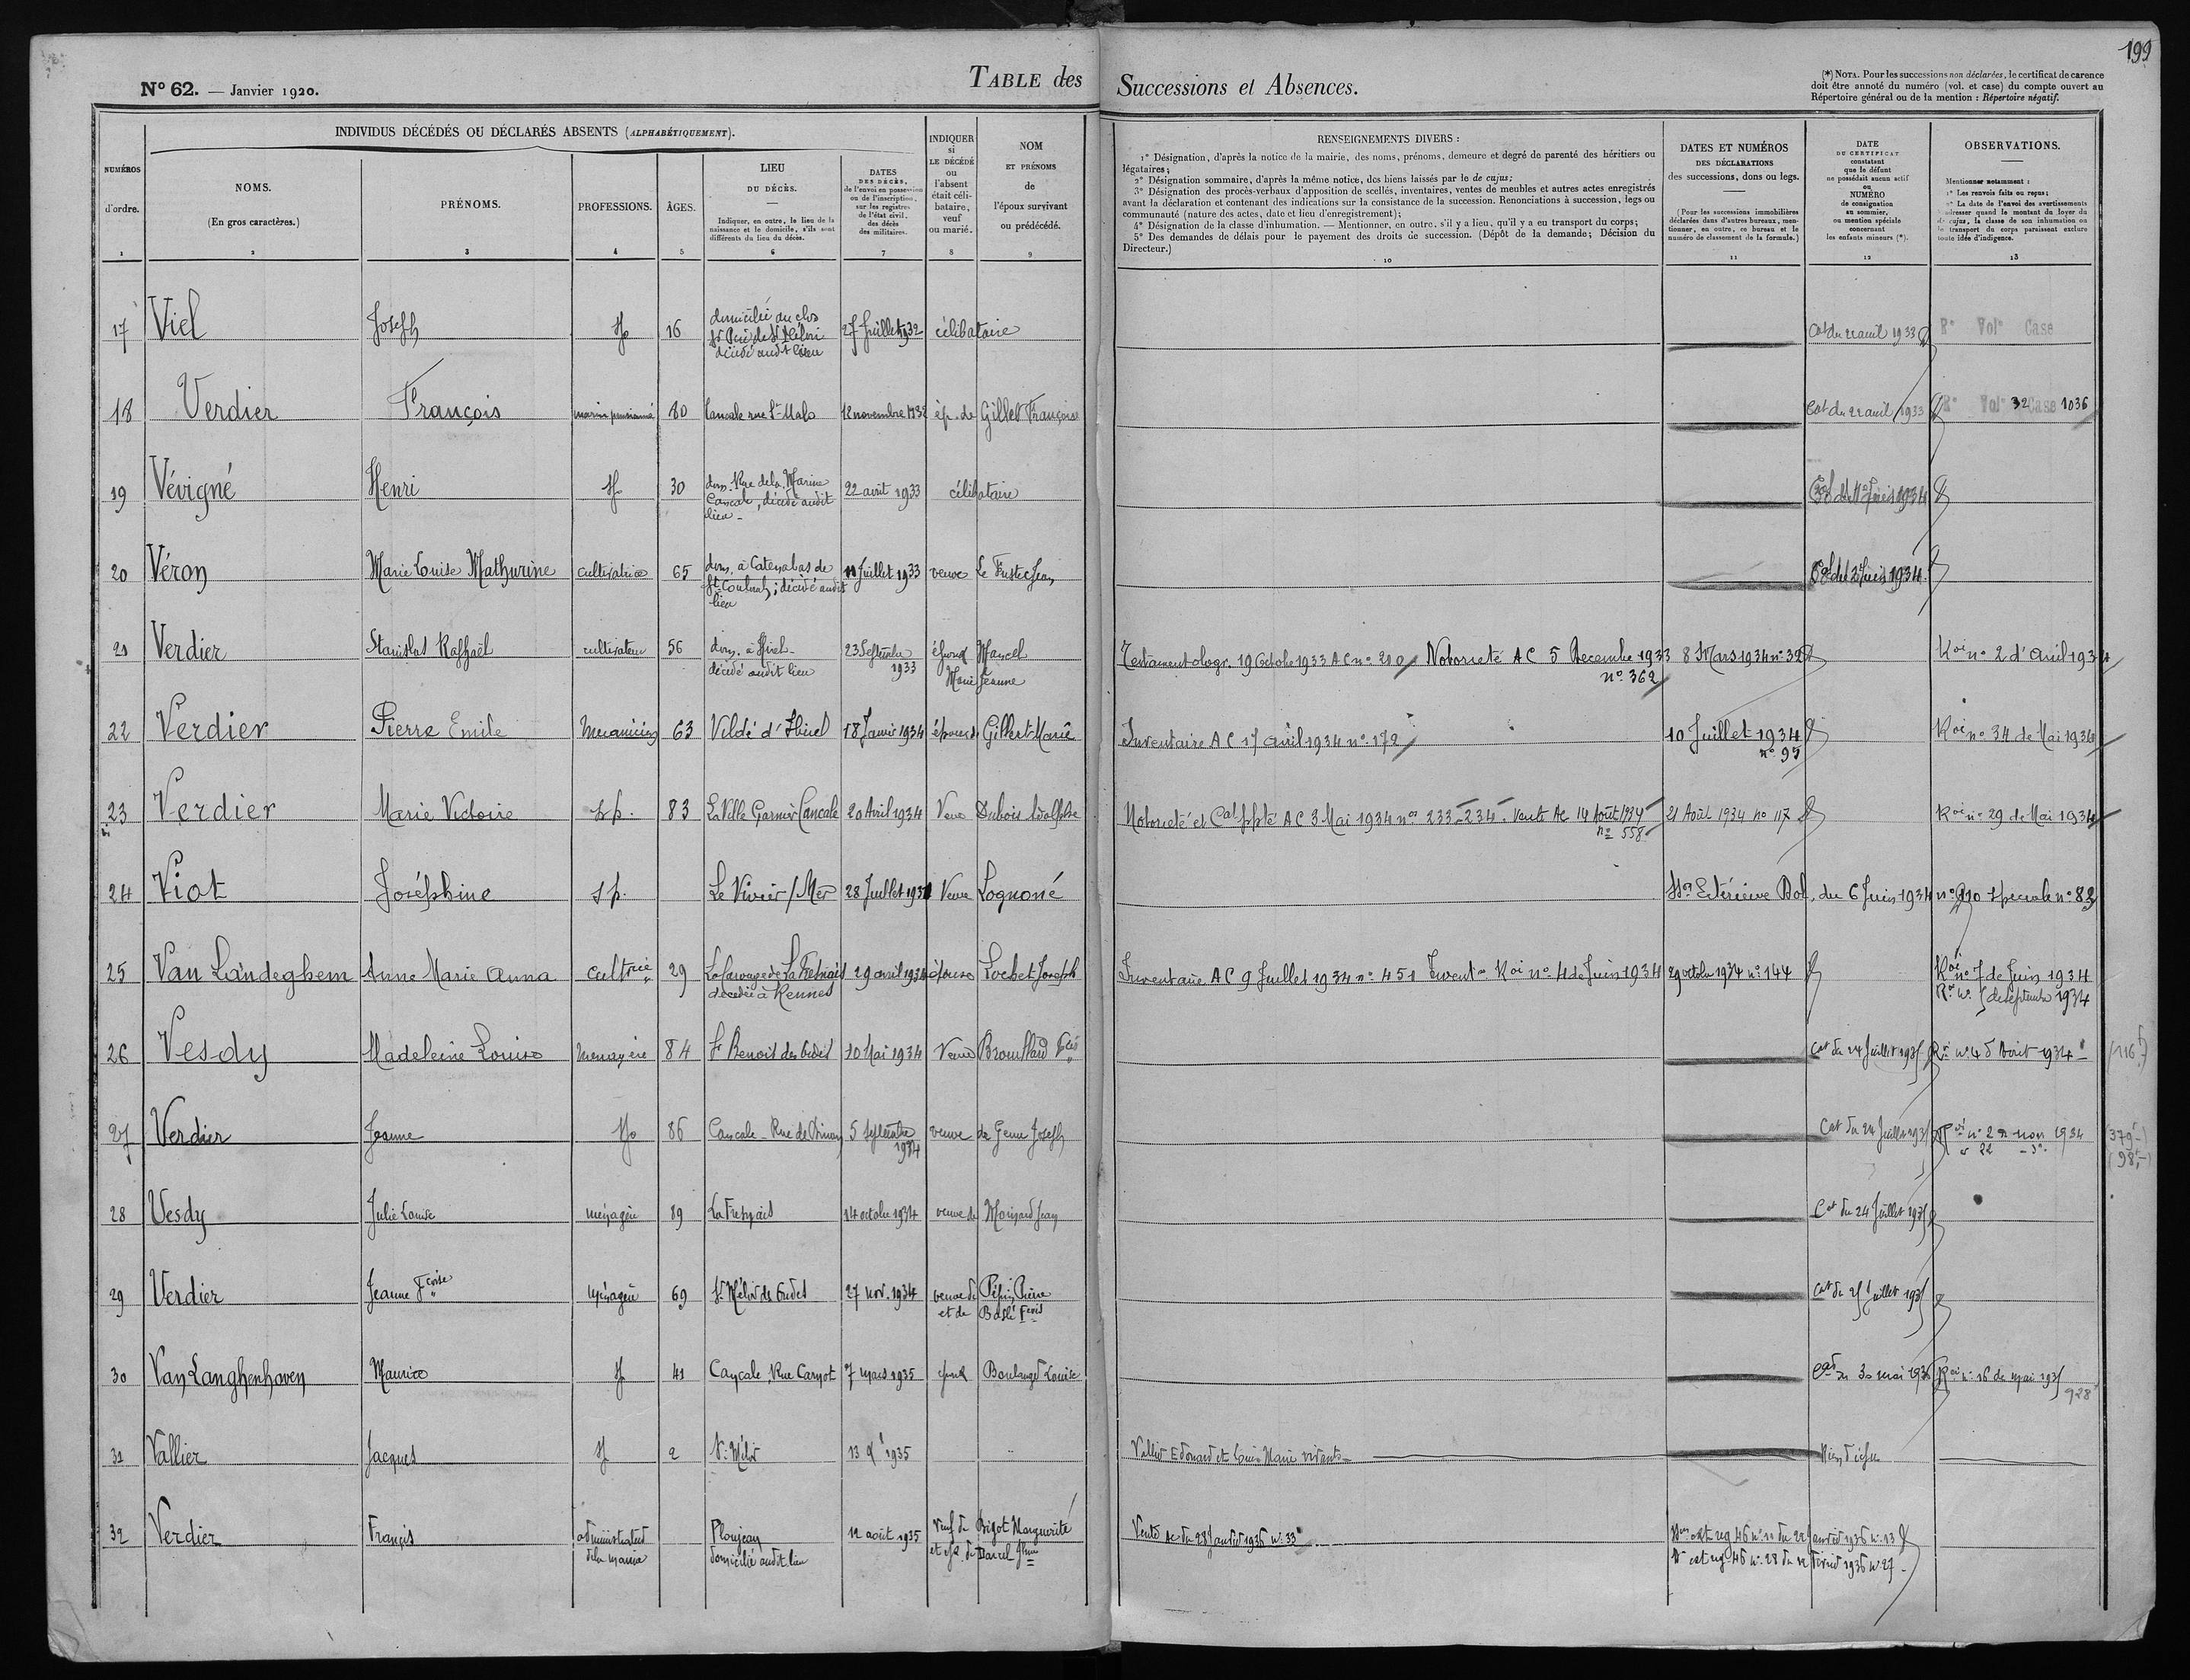 199
N° 62. — Janvier 1920.
TABLE des Successions et Absences.
(*) NOTA. Pour les successions non déclarées, le certificat de carence
doit être annoté du numéro (vol. et case) du compte ouvert au
Répertoire général ou de la mention : Répertoire négatif.
NUMÉROS
d'ordre.
1
INDIVIDUS DÉCÉDÉS OU DÉCLARÉS ABSENTS (ALPHABÉTIQUEMENT).
NOMS.
(En gros caractères.)
2
PRÉNOMS.
3
PROFESSIONS.
4
ÂGES.
5
LIEU
DU DÉCÈS.
Indiquer, en outre, le lieu de la
naissance et le domicile, s'ils sont
différents du lieu du décès.
6
DATES
DES DÉCÈS,
de l'envoi en possession
ou de l'inscription,
sur les registres
de l'état civil,
des décès
des militaires.
7
INDIQUER
si
LE DÉCÉDÉ
ou
l'absent
était céli-
bataire,
veuf
ou marié.
8
NOM
ET PRÉNOMS
de
l'époux survivant
ou prédécédé.
9
RENSEIGNEMENTS DIVERS :
1° Désignation, d'après la notice de la mairie, des noms, prénoms, demeure et degré de parenté des héritiers ou
légataires;
2° Désignation sommaire, d'après la même notice, des biens laissés par le de cujus;
3° Désignation des procès-verbaux d'apposition de scellés, inventaires, ventes de meubles et autres actes enregistrés
avant la déclaration et contenant des indications sur la consistance de la succession. Renonciations à succession, legs ou
communauté (nature des actes, date et lieu d'enregistrement);
4° Désignation de la classe d'inhumation. — Mentionner, en outre, s'il y a lieu, qu'il y a eu transport du corps;
5° Des demandes de délais pour le payement des droits de succession. (Dépôt de la demande; Décision du
Directeur.)
10
DATES ET NUMÉROS
DES DÉCLARATIONS
des successions, dons ou legs.
(Pour les successions immobilières
déclarées dans d'autres bureaux, men-
tionner, en outre, ce bureau et le
numéro de classement de la formule.)
11
DATE
DU CERTIFICAT
constatant
que le défunt
ne possédait aucun actif
ou
NUMÉRO
de consignation
au sommier,
ou mention spéciale
concernant
les enfants mineurs (*).
12
OBSERVATIONS.
Mentionner notamment :
1° Les renvois faits ou reçus;
2° La date de l'envoi des avertissements
à adresser quand le montant du loyer du
de cujus, la classe de son inhumation ou
le transport du corps paraissent exclure
toute idée d'indigence.
13
17 Viel Joseph 16 domicilié au clos 27 Juillet 1932 célibataire Cat du 22 avril 1933 R° Vol° Case
décédé audt lieu
18 Verdier François marin pensionné 80 Cancale rue St-Malo 12 novembre 1932 ép. de Gillet Françoise Cat du 22 avril 1933 R° Vol° 32 Case 1036
19 Vévigné Henri 30 dom. Rue de la Marine 22 avril 1933 célibataire
Cancale, décédé audit
lieu
20 Véron Marie Louise Mathurine cultivatrice 65 dom. à 11 Juillet 1933 veuve Le Fustec Jean
St Coulomb; décédé audit
lieu
21 Verdier Stanislas Raphaël cultivateur 56 dom. à Hirel 23 Septembre époux Marcel Testament ologr. 19 Octobre 1933 AC n° 210 Notorieté AC 5 Decembre 1933 8 Mars 1934 n° 32 Roi n° 2 d'Avril 1934
décédé audit lieu 1933 Marie Jeanne n° 362
22 Verdier Pierre Emile Mecanicien 63 Vildé d'Hirel 18 Janvier 1934 époux de Gilbert Marie Inventaire AC 17 Avril 1934 n° 172 10 Juillet 1934 Roi n° 34 de Mai 1934
n° 95
23 Verdier Marie Victoire s.p. 83 La Ville Garnier Cancale 20 Avril 1934 Veuve Dubois Adolphe Notorieté et Cat ppté AC 3 Mai 1934 nos 233-234. Vente AC 14 Août 1934 21 Août 1934 n° 117 Roi n° 29 de Mai 1934
n° 558
24 Viot Joséphine s.p. Le Vivier/Mer 28 Juillet 1931 Veuve Lognoné Son Extérieure Dol, du 6 Juin 1934 n° 910 speciale n° 82
25 Van Landeghem Anne Marie Anna cultrice 29 29 avril 1934 épouse Lochet Joseph Inventaire AC 9 Juillet 1934 n° 451 Invent. Roi n° 4 de Juin 1934 29 octobre 1934 n° 144 Roi n° 7 de Juin 1934
décédée à Rennes de Septembre 1934
26 Vesdy Madeleine Louise Menagère 84 St Benoit des Ondes 10 Mai 1934 Veuve Brouillard Fcis Cat du 24 Juillet 1935 Roi n° 4 d'Août 1934 (116)
27 Verdier Jeanne 86 Cancale - Rue de 5 Septembre veuve de Genu Joseph Cat du 24 Juillet 1935 Roi n° 2 nov 1934 (379)
1934 et 22 (98)
28 Vesdy Julie Louise ménagère 89 La Fresnais 14 octobre 1934 veuve de Moisard Jean Cat du 24 Juillet 1935
29 Verdier Jeanne Fçoise ménagère 69 St Méloir des Ondes 27 nov. 1934 veuve de Pépin Pierre Cat du 25 Juillet 1935
et de Baslé Fçois
30 Van Langhenhoven Maurice 41 Cancale, Rue Carnot 7 mars 1935 époux Boulanger Louise Cat du 30 mai 1936 Roi n° 16 de mai 1935
928
31 Vallier Jacques 2 St-Méloir 13 1935 Vallier Edouard et Marie vivants
32 Verdier François administrateur Ploujean 12 août 1935 Veuf de Bigot Marguerite Vente AC du 28 Janvier 1936 n° 33 Son ext reg 46 n° 11 du 22 Janvier 1936 n° 13
de la marine domicilié audit lieu et ép. de Darrel ext reg. 46 n° 28 du 12 Février 1936 n° 27